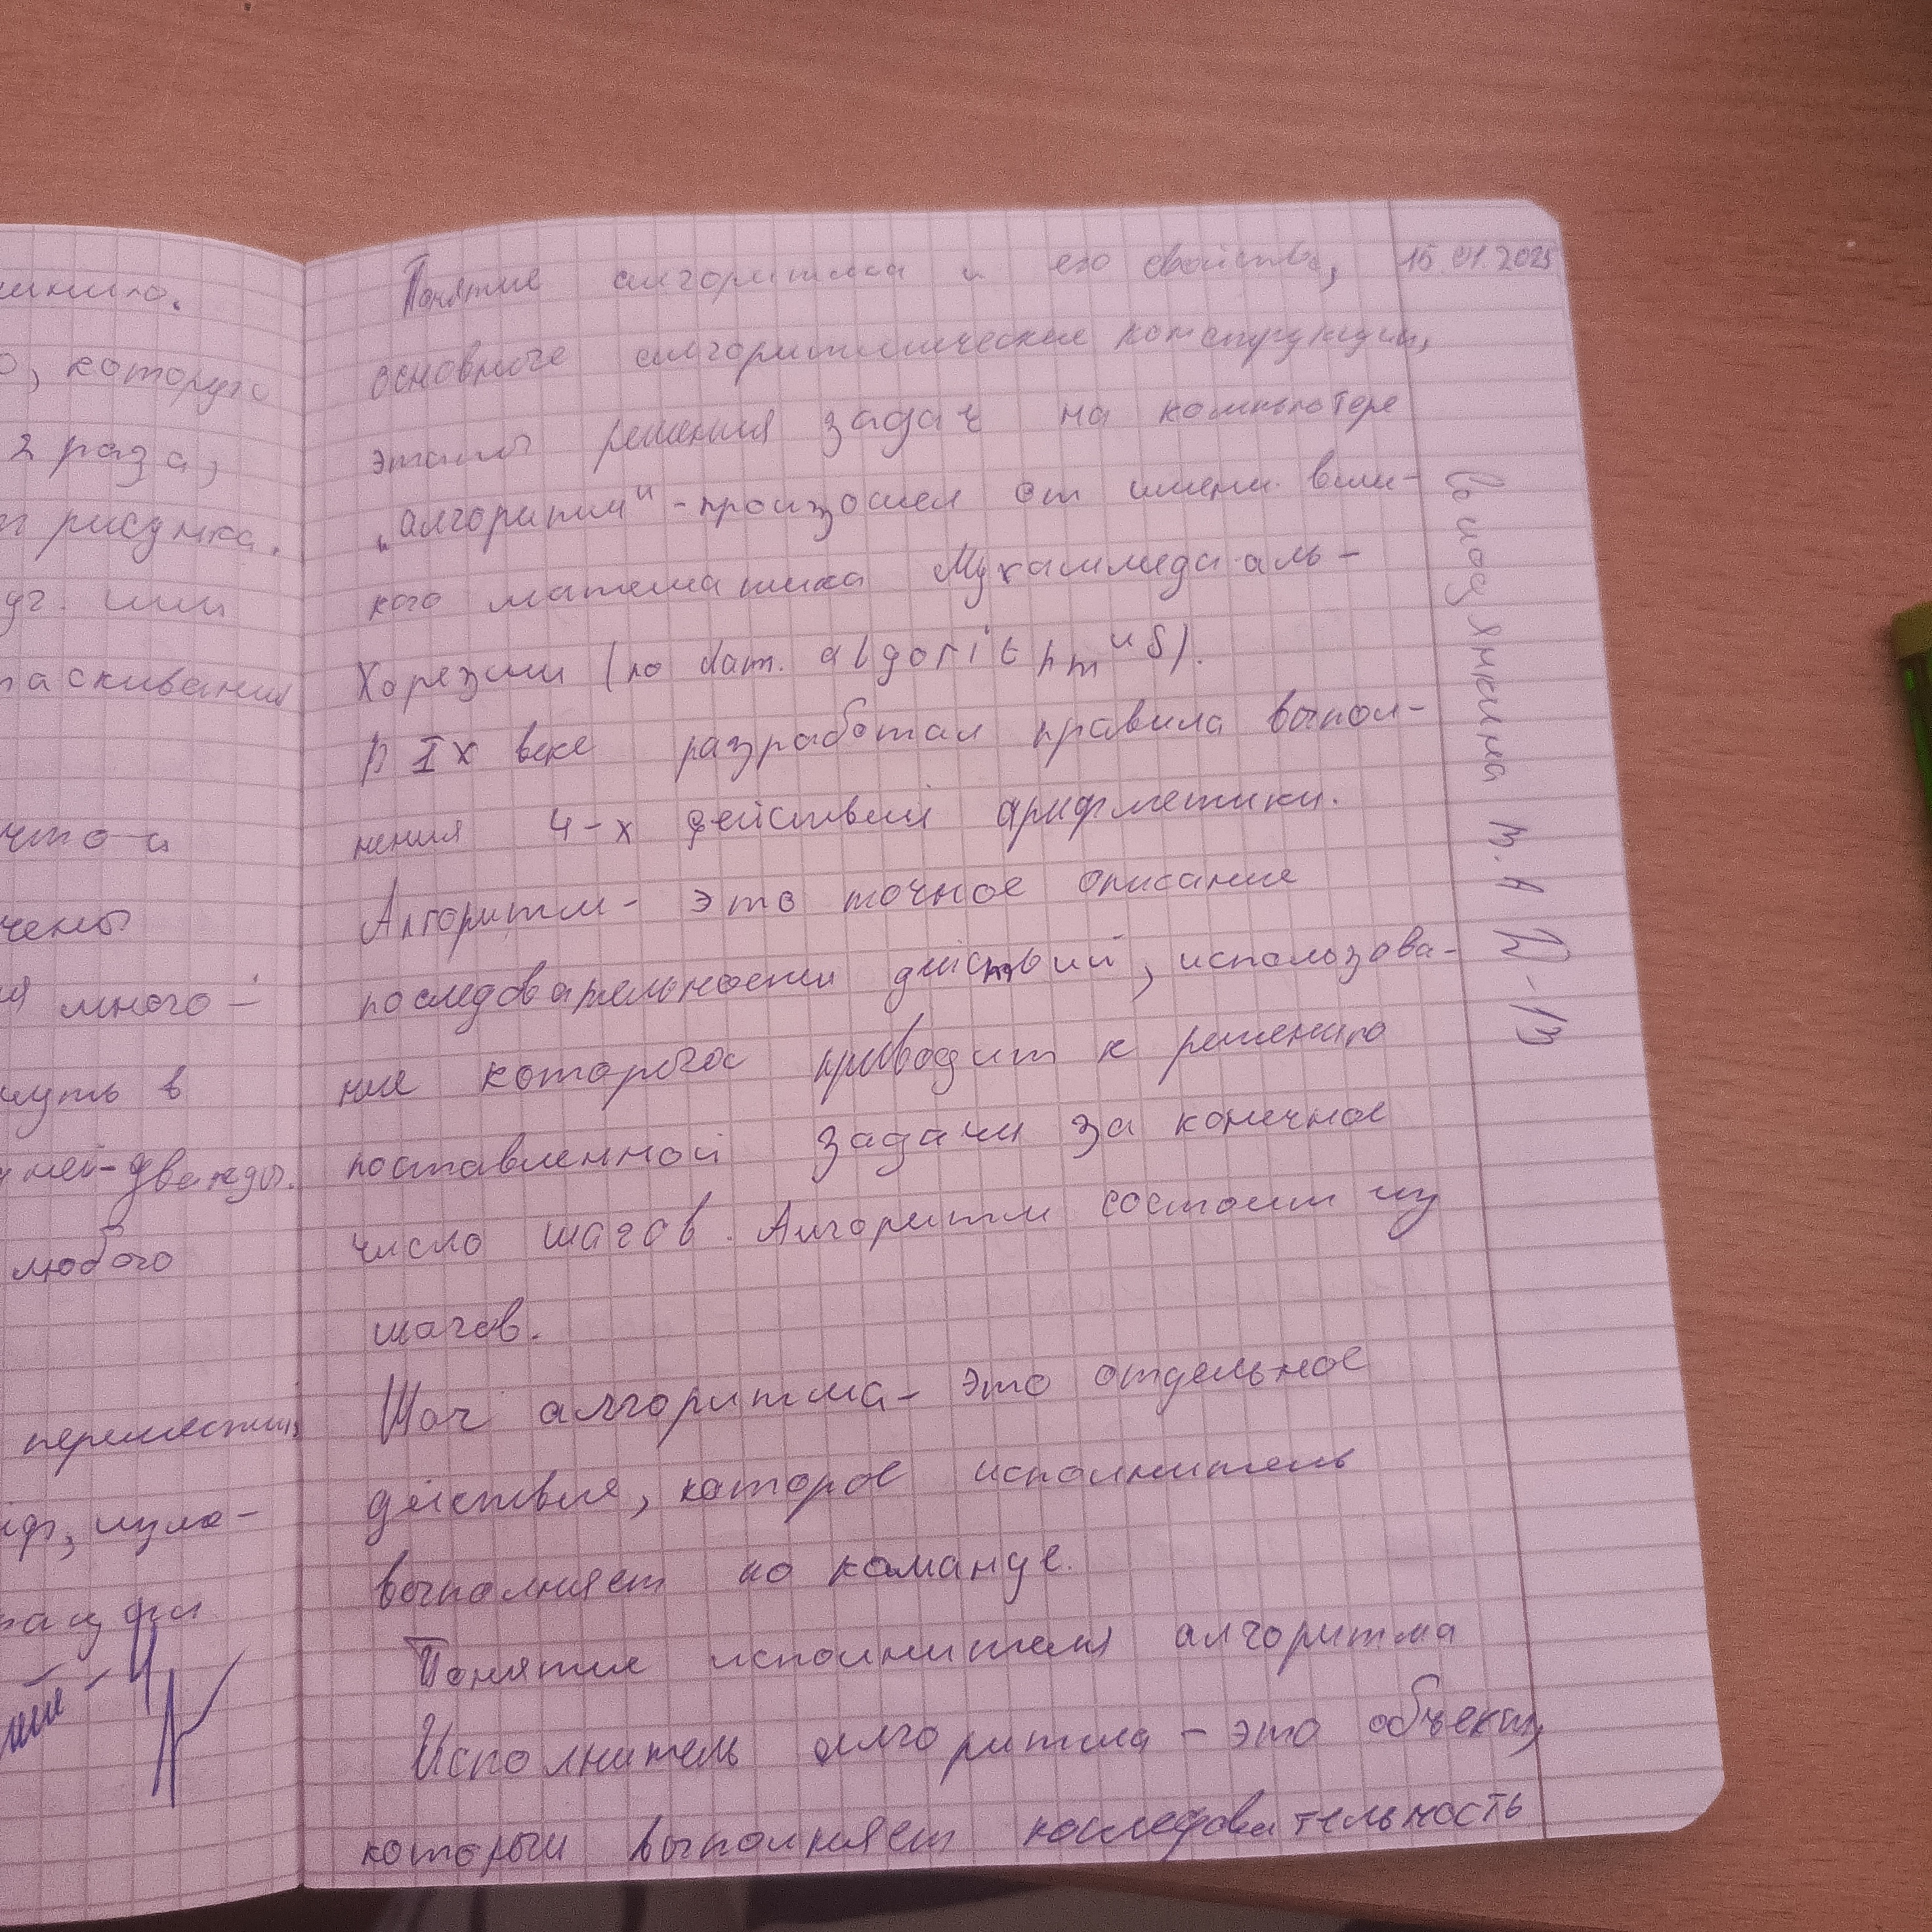 шимию.
о, которую
2 раза,
рисунка.
или
таскивания
что-и
чены
ия много-
нуть в
ней-дважды.
любого
переместить
изме-
4
Понятие алгоритма и его свойства, 15.01.2025
основные алгоритмические конструкции,
этапы решения задач на компьютере
„алгоритм" - произошел от имени вели-
кого математика Мухаммеда аль-
Хорезми (по лат. algorithmus).
В IX веке разработал правила выпол-
нения 4-х действий арифметики.
Алгоритм - это точное описание
последовательности действий, использова-
ние которых приводит к решению
поставленной задачи за конечное
число шагов. Алгоритм состоит из
шагов.
Шаг алгоритма - это отдельное
действие, которое исполнитель
выполняет по команде.
Понятие исполнителя алгоритма
Исполнитель алгоритма - это объект,
который выполняет последовательность
В.А Д-13